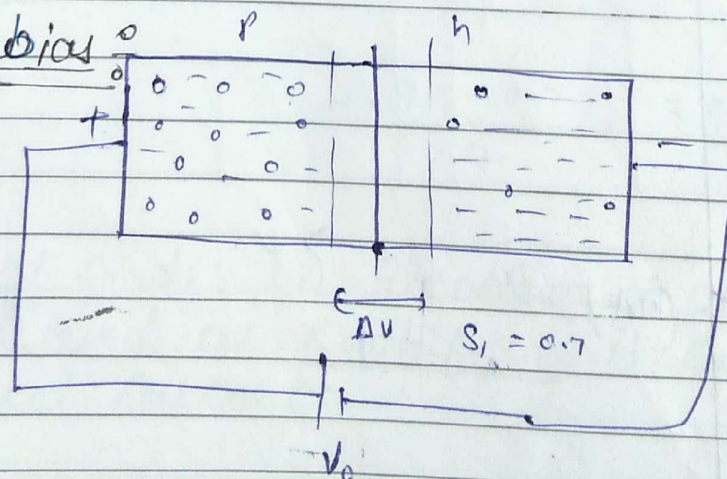 bias :-
p n
+ -
ΔV S₁ = 0.7
V₀